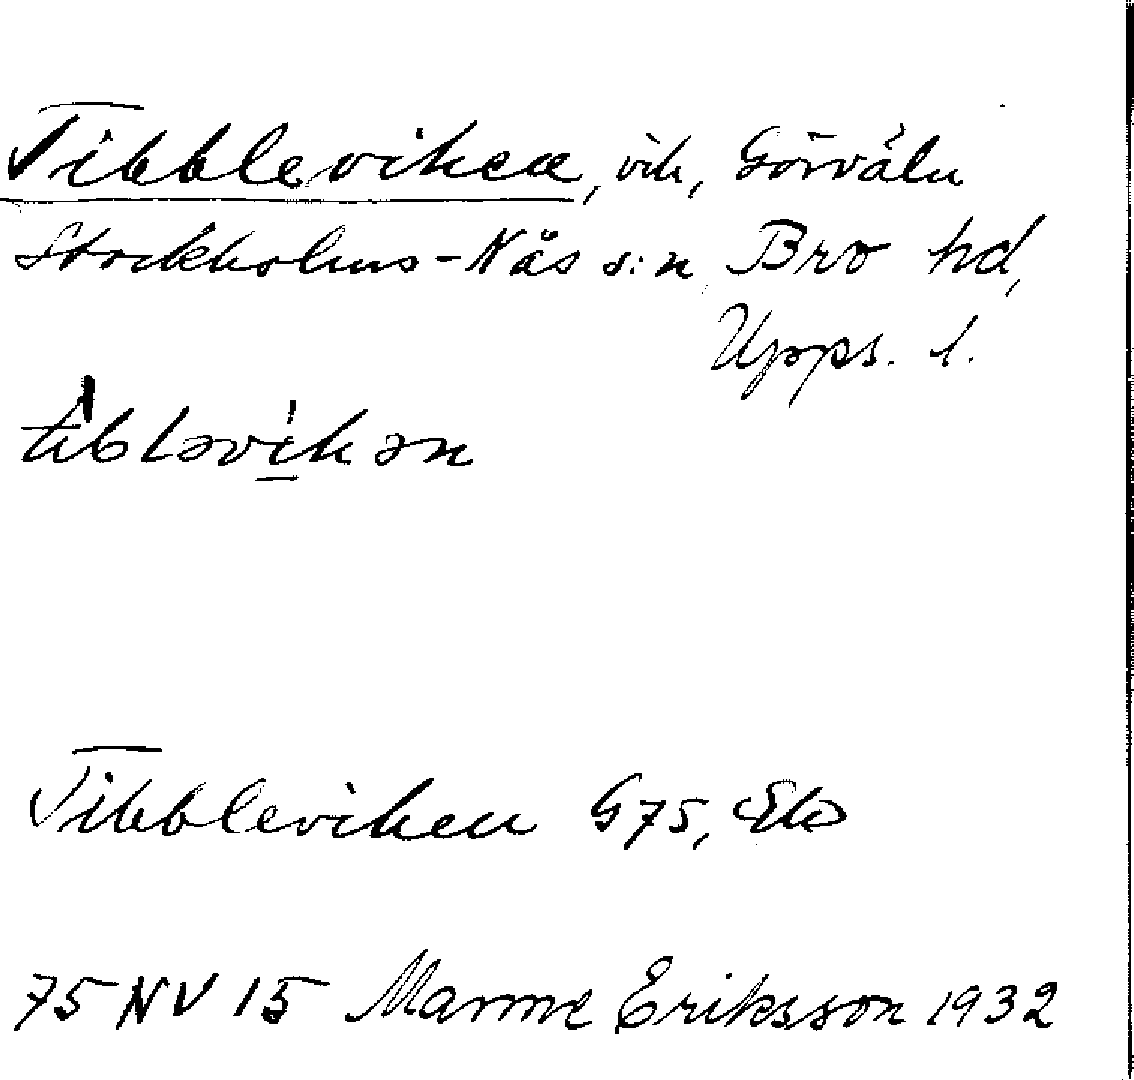 Tibbleviken, vik, Görväln
Stockholms-Näs s:n, Bro hd,
Upps. l.
tibləvikən
Tibbleviken G75, Ek
75 NV 15 Manne Eriksson 1932